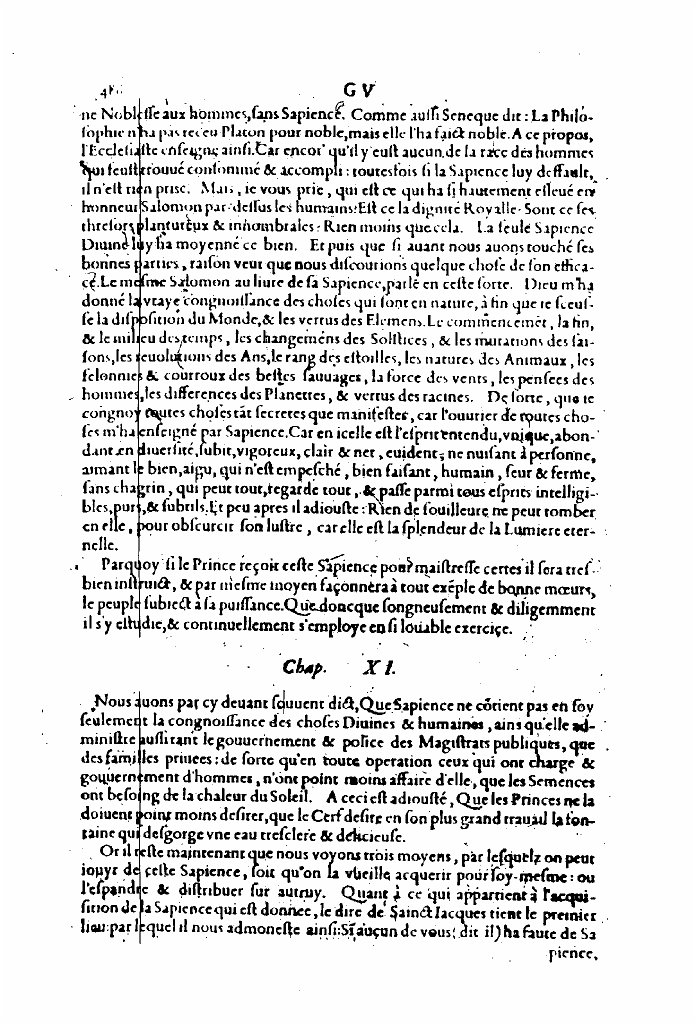 G V
ne Noblesse aux hommes, sans Sapience. Comme aussi Seneque dit : La Philo-
sophie n'ha pas receu Platon pour noble, mais elle l'ha faict noble. A ce propos,
l'Ecclesiaste enseigne ainsi. Car encor' qu'il y eust aucun de la race des hommes
qui feust trouué consommé & accompli : toutesfois si la Sapience luy deffault,
il n'est rien prise. Mais, ie vous prie, qui est ce qui ha si hautement esleué en
honneur Salomon par-dessus les humains? Est ce la dignité Royalle? Sont ce ses
thresors plantureux & inhombrales? Rien moins que cela. La seule Sapience
Diuine luy ha moyenné ce bien. Et puis que si auant nous auons touché ses
bonnes parties, raison veut que nous discourions quelque chose de son effica-
ce. Le mesme Salomon au liure de sa Sapience, parle en ceste sorte. Dieu m'ha
donné la vraye congnoissance des choses qui sont en nature, à fin que ie sceus-
se la disposition du Monde, & les vertus des Elemens. Le commencemēt, la fin,
& le milieu des temps, les changemens des Solstices, & les mutations des sai-
sons, les reuolutions des Ans, le rang des estoilles, les natures des Animaux, les
felonnies & courroux des bestes sauuages, la force des vents, les pensees des
hommes, les differences des Planettes, & vertus des racines. De sorte, que ie
congnoy toutes choses tāt secretes que manifestes, car l'ouurier de toutes cho-
ses m'ha enseigné par Sapience. Car en icelle est l'esprit entendu, vnique, abon-
dant en diuersité, subit, vigoreux, clair & net, euident, ne nuisant à personne,
aimant le bien, aigu, qui n'est empesché, bien faisant, humain, seur & ferme,
sans chagrin, qui peut tout, regarde tout, & passe parmi tous esprits intelligi-
bles, purs, & subtils. Et peu apres il adiouste : Rien de souilleure ne peut tomber
en elle, pour obscurcir son lustre, car elle est la splendeur de la Lumiere eter-
nelle.
Parquoy si le Prince reçoit ceste Sapience pour maistresse certes il sera tres-
bien instruict, & par mesme moyen façonnera à tout exēple de bonne mœurs,
le peuple subiect à sa puissance. Que doncque songneusement & diligemment
il s'y estudie, & continuellement s'employe en si louable exercice.
Chap. XI.
Nous auons par cy deuant souuent dict, Que Sapience ne cōtient pas en soy
seulement la congnoissance des choses Diuines & humaines, ains qu'elle ad-
ministre aussi tant le gouuernement & police des Magistrats publiques, que
des familles priuees : de sorte qu'en toute operation ceux qui ont charge &
gouuernement d'hommes, n'ont point moins affaire d'elle, que les Semences
ont besoing de la chaleur du Soleil. A ceci est adiousté, Que les Princes ne la
doiuent point moins desirer, que le Cerf desire en son plus grand trauail la fon-
taine qui desgorge vne eau tresclere & delicieuse.
Or il reste maintenant que nous voyons trois moyens, par lesquelz on peut
iouyr de ceste Sapience, soit qu'on la vueille acquerir pour soy-mesme : ou
l'espandre & distribuer sur autruy. Quant à ce qui appartient à l'acqui-
sition de la Sapience qui est donnee, le dire de Sainct Iacques tient le premier
lieu : par lequel il nous admoneste ainsi: Si aucun de vous (dit il) ha faute de Sa
pience,